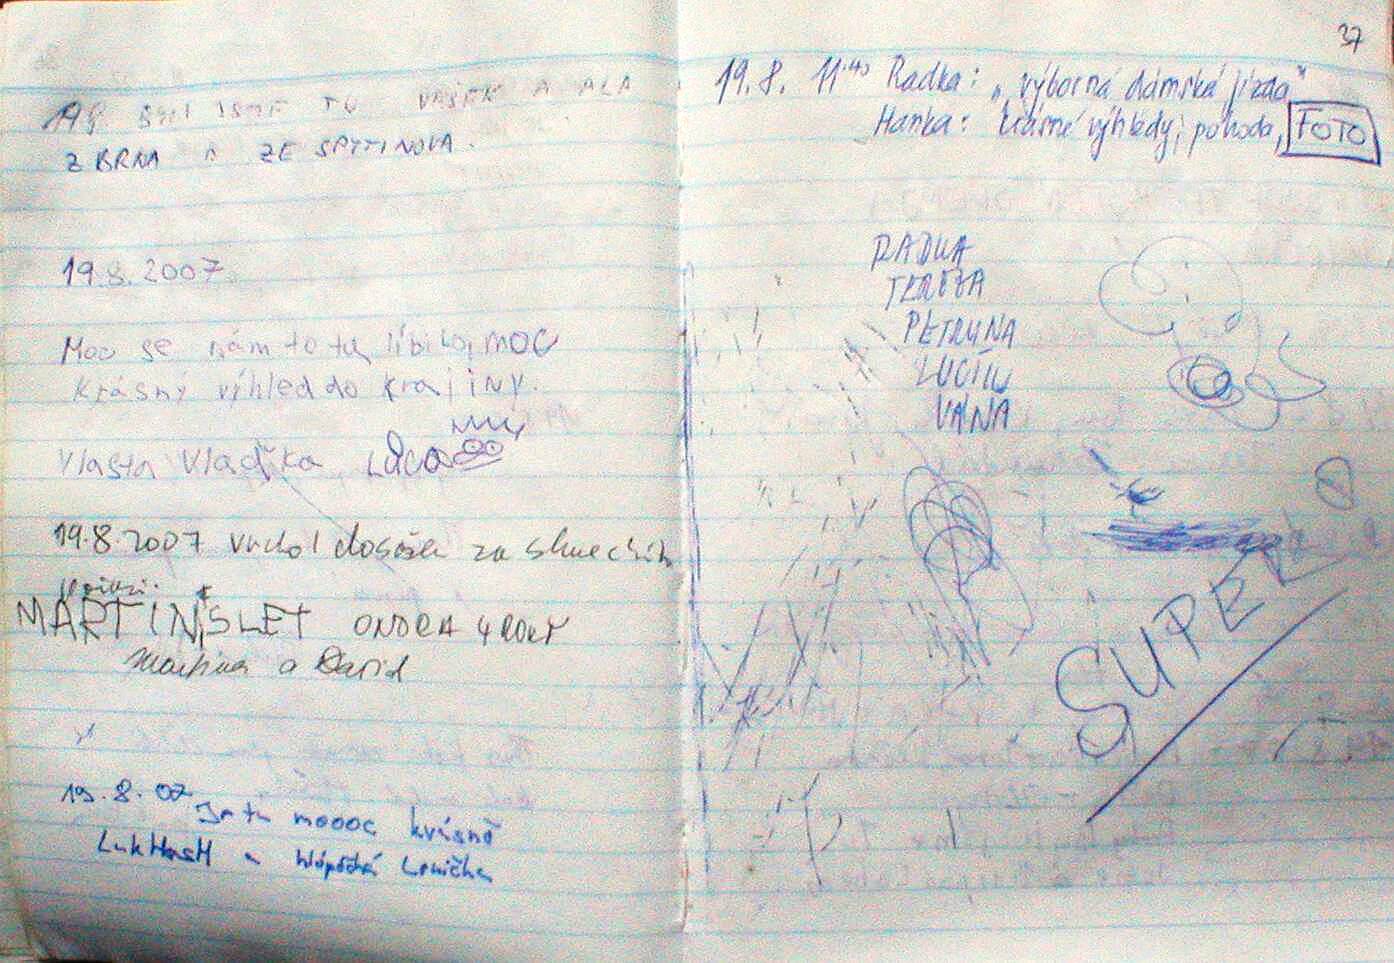 19.8 BYLI JSME TU VAŠEK A ALA
Z BRNA A ZE SPYTINOVA.
19.8.2007
Moc se nám to tu líbilo, moc
krásný výhled do krajiny.
Vlasta Vladka, Luca
19.8.2007 vrchol dosažen za
MARTIN ŠLET ONDRA 4 ROKY
Martina a David
19.8.07 Je tu moooc krásně
LukHasH a Lenička
37
19.8. 11:40 Radka: „výborná dámská jízda"
Hanka: krásné výhledy, pohoda, FOTO
RADKA
TEREZA
PETRUNA
LUCÍU
VAŇA
SUPER